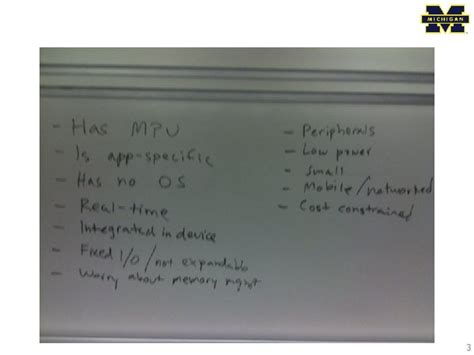 MICHIGAN
- Has MPU
- Is app-specific
- Has no OS
- Real-time
- Integrated in device
- Fixed I/O / not expandable
- Worry about memory mgmt
- Peripherals
- Low power
- Small
- Mobile/networked
- Cost constrained
3